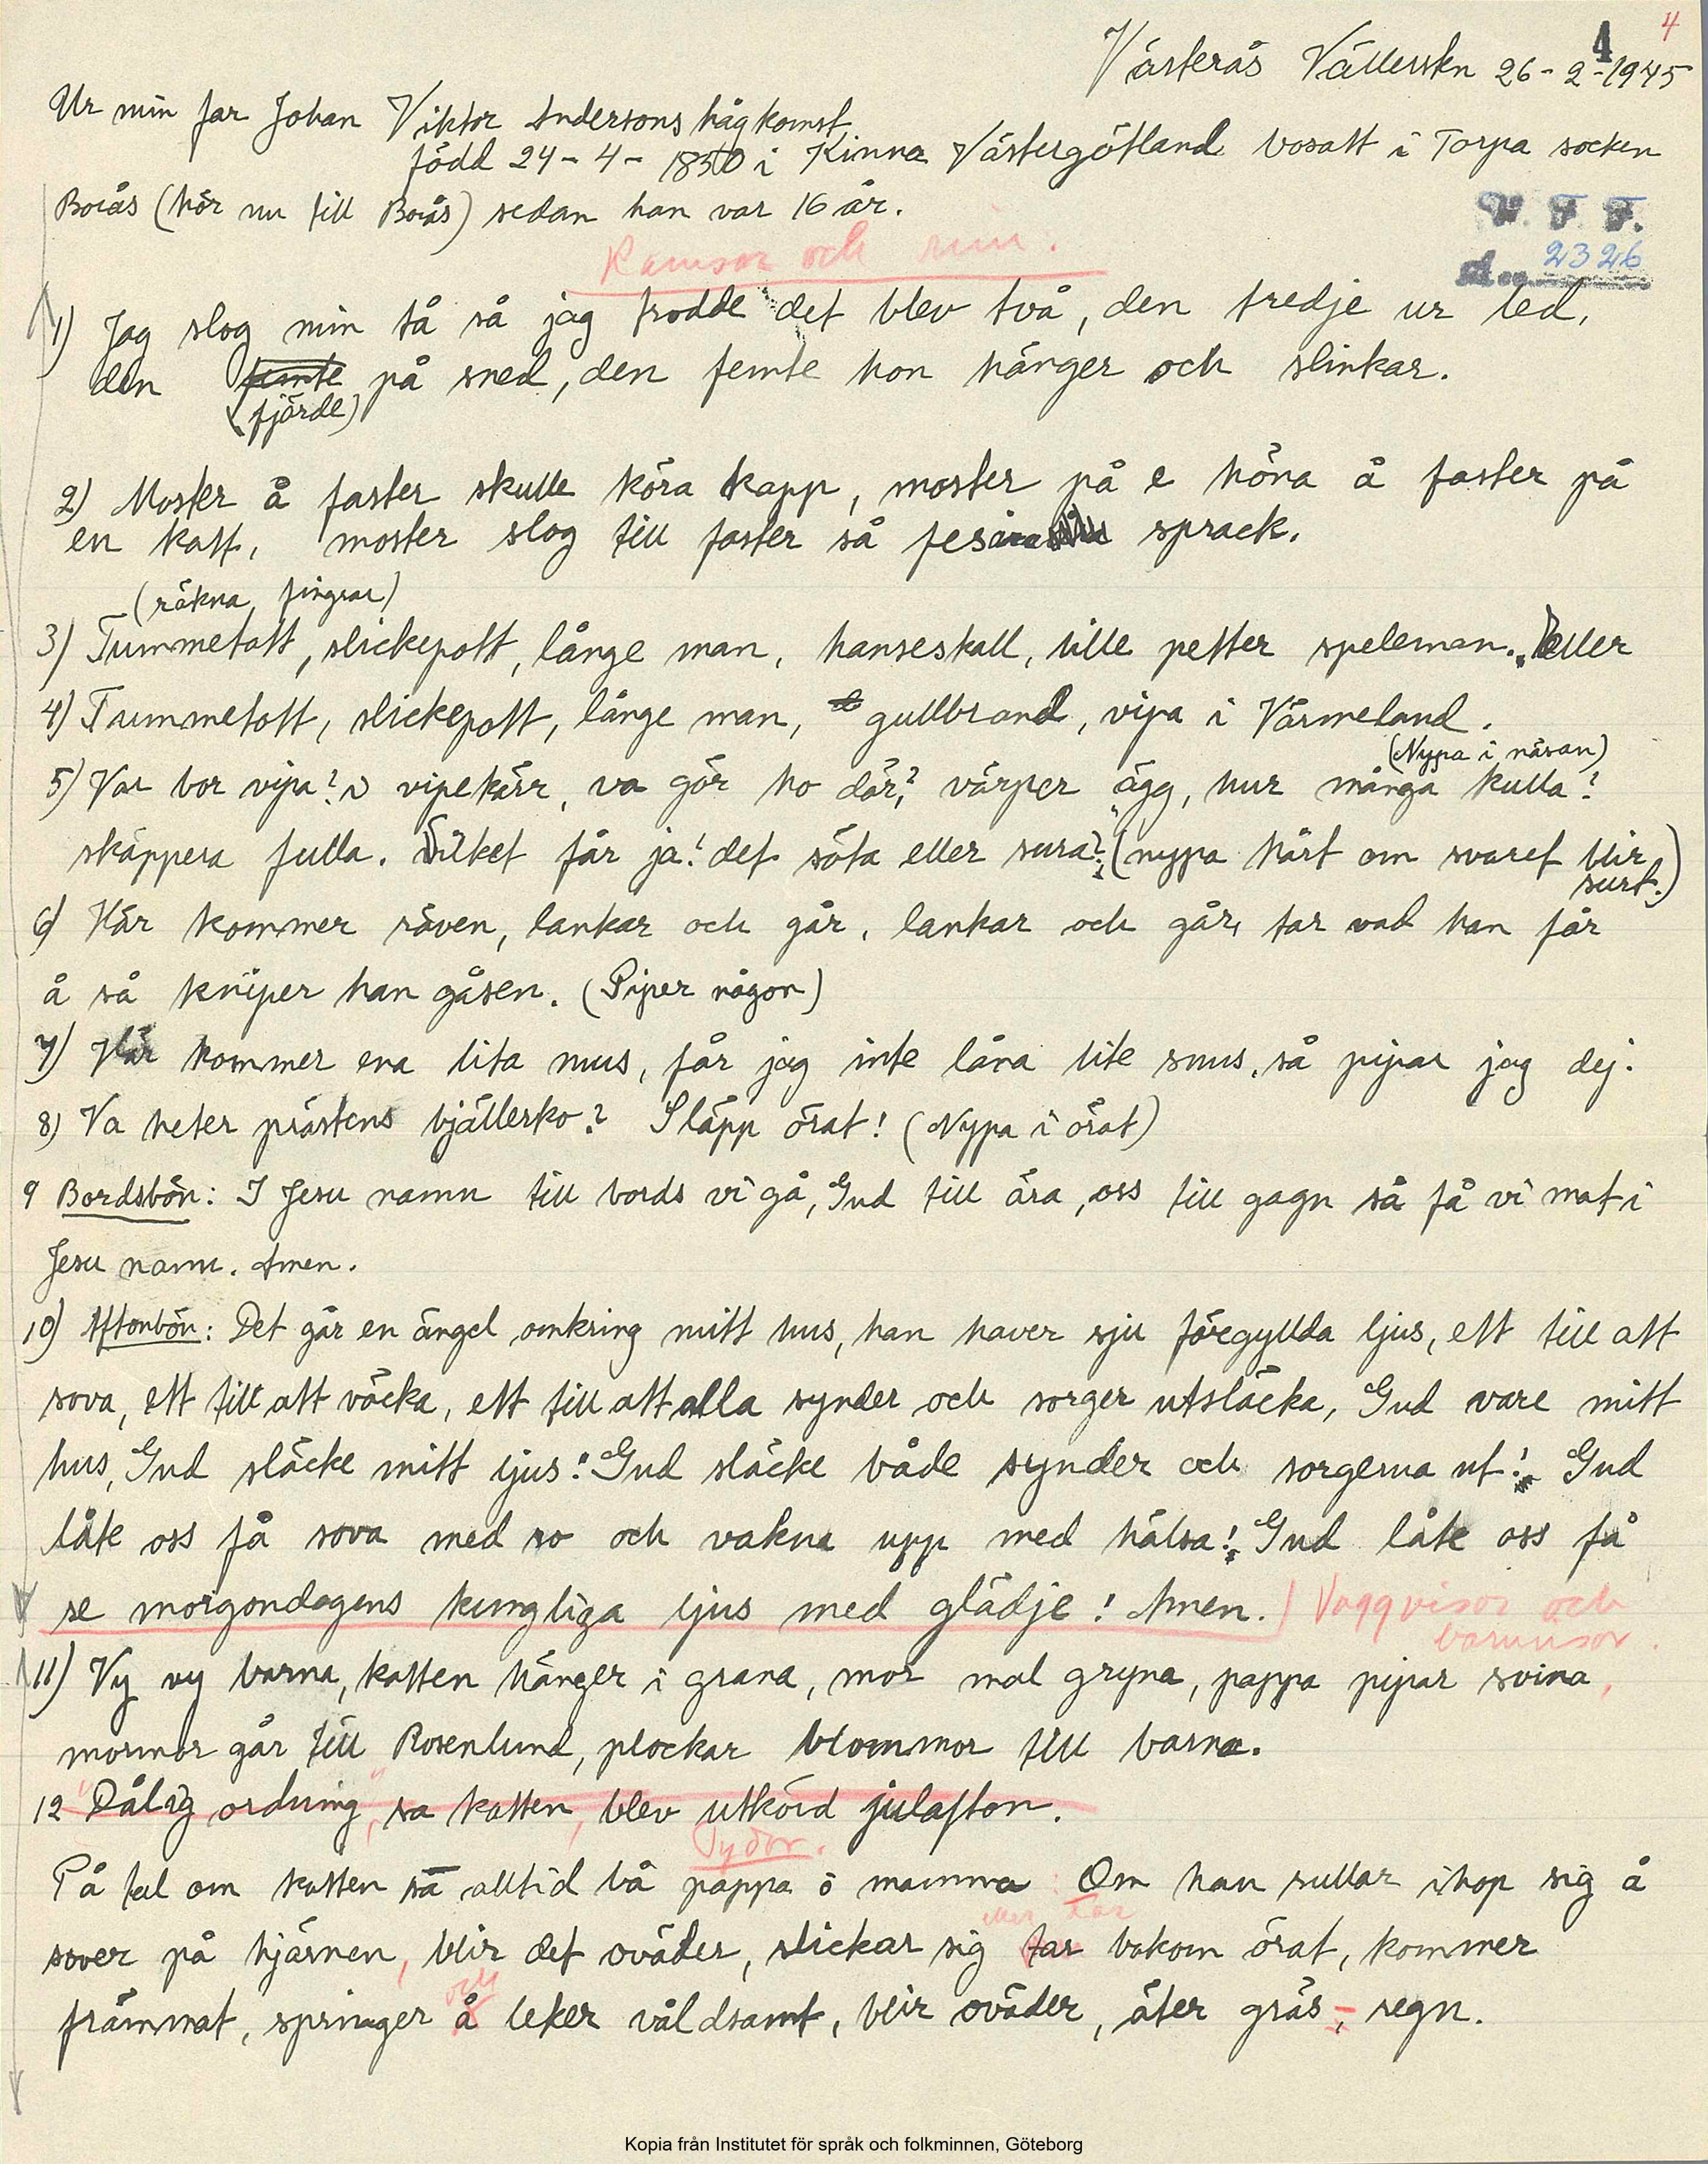 4
4
Västerås Vällerskn 26-2-1945
Ur min far Johan Viktor Andersons hågkomst
född 24-4-1850 i Kinna Västergötland bosatt i Torpa socken
Borås (hör nu till Borås) sedan han var 16 år.
V. F. F.
Ramsor och rim.
d... 2326
1) Jag slog min tå så jag trodde det blev två, den tredje ur led,
den femte på sned, den femte hon hänger och slinkar.
(fjärde)
2) Moster å faster skulle köra kapp, moster på e höna å faster på
en katt, moster slog till faster så sprack.
(räkna fingrar)
3) Tummetott, slickepott, långe man, hanseskall, lille petter speleman. eller
4) Tummetott, slickepott, långe man, gullbrand, vipa i Värmeland.
(Nypa i näsan)
5) Var bor vipa? i vipekärr, va gör ho där? värper ägg, hur många kulla?
skäppera fulla. Vilket får ja? det söta eller sura? (nypa hårt om svaret blir
surt.)
6) Här kommer räven, lankar och går, lankar och går, tar vad han får
å så kniper han gåsen. (Piper någon)
7) Här kommer ena lita mus, får jag inte låna lite snus, så pipar jag dej.
8) Va heter prästens bjällerko? Släpp örat! (Nypa i örat)
9 Bordsbön: I Jesu namn till bords vi gå, Gud till ära, oss till gagn så få vi mat i
Jesu namn. Amen.
10) Aftonbön: Det går en ängel omkring mitt hus, han haver sju föregyllda ljus, ett till att
sova, ett till att väcka, ett till att alla synder och sorger utsläcka, Gud vare mitt
hus, Gud släcke mitt ljus! Gud släcke både synder och sorgerna ut! Gud
låte oss få sova med ro och vakna upp med hälsa! Gud låte oss få
se morgondagens kungliga ljus med glädje! Amen. Vaggvisor och
barnvisor.
11) Vy vy barna, katten hänger i grana, mor mal gryna, pappa pipar svina,
mormor går till Rosenlund, plockar blommor till barna.
12 "Dålig ordning", sa katten, blev utkörd julafton.
Tydor.
På tal om katten sa alltid bå pappa o mamma: Om han rullar ihop sig å
eller tar
sover på hjärnen, blir det oväder, slickar sig tar bakom örat, kommer
och
främmat, springer å leker våldsamt, blir oväder, äter gräs, = regn.
Kopia från Institutet för språk och folkminnen, Göteborg